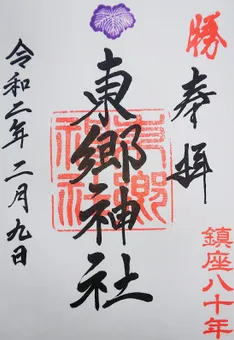 勝
奉拝
鎮座八十年
東郷神社
東郷神社
令和二年二月九日